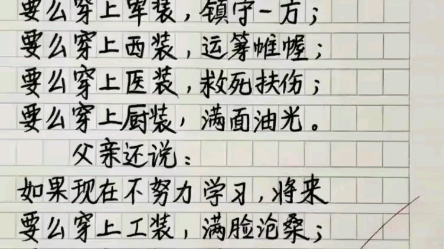 要么穿上军装，镇守一方；
要么穿上西装，运筹帷幄；
要么穿上医装，救死扶伤；
要么穿上厨装，满面油光。
父亲还说：
如果现在不努力学习，将来
要么穿上工装，满脸沧桑；